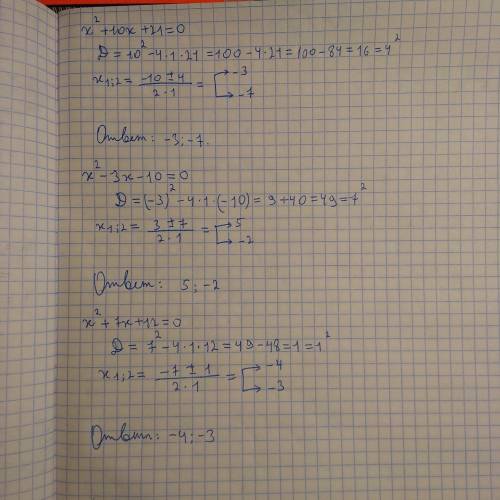 x²+10x+21=0
D=10²-4·1·21=100-4·21=100-84=16=4²
x1;2= (-10±4)/(2·1) = -3
-7
Ответ: -3;-7.
x²-3x-10=0
D=(-3)²-4·1·(-10)=9+40=49=7²
x1;2= (3±7)/(2·1) = 5
-2
Ответ: 5;-2
x²+7x+12=0
D=7²-4·1·12=49-48=1=1²
x1;2= (-7±1)/(2·1) = -4
-3
Ответ: -4;-3